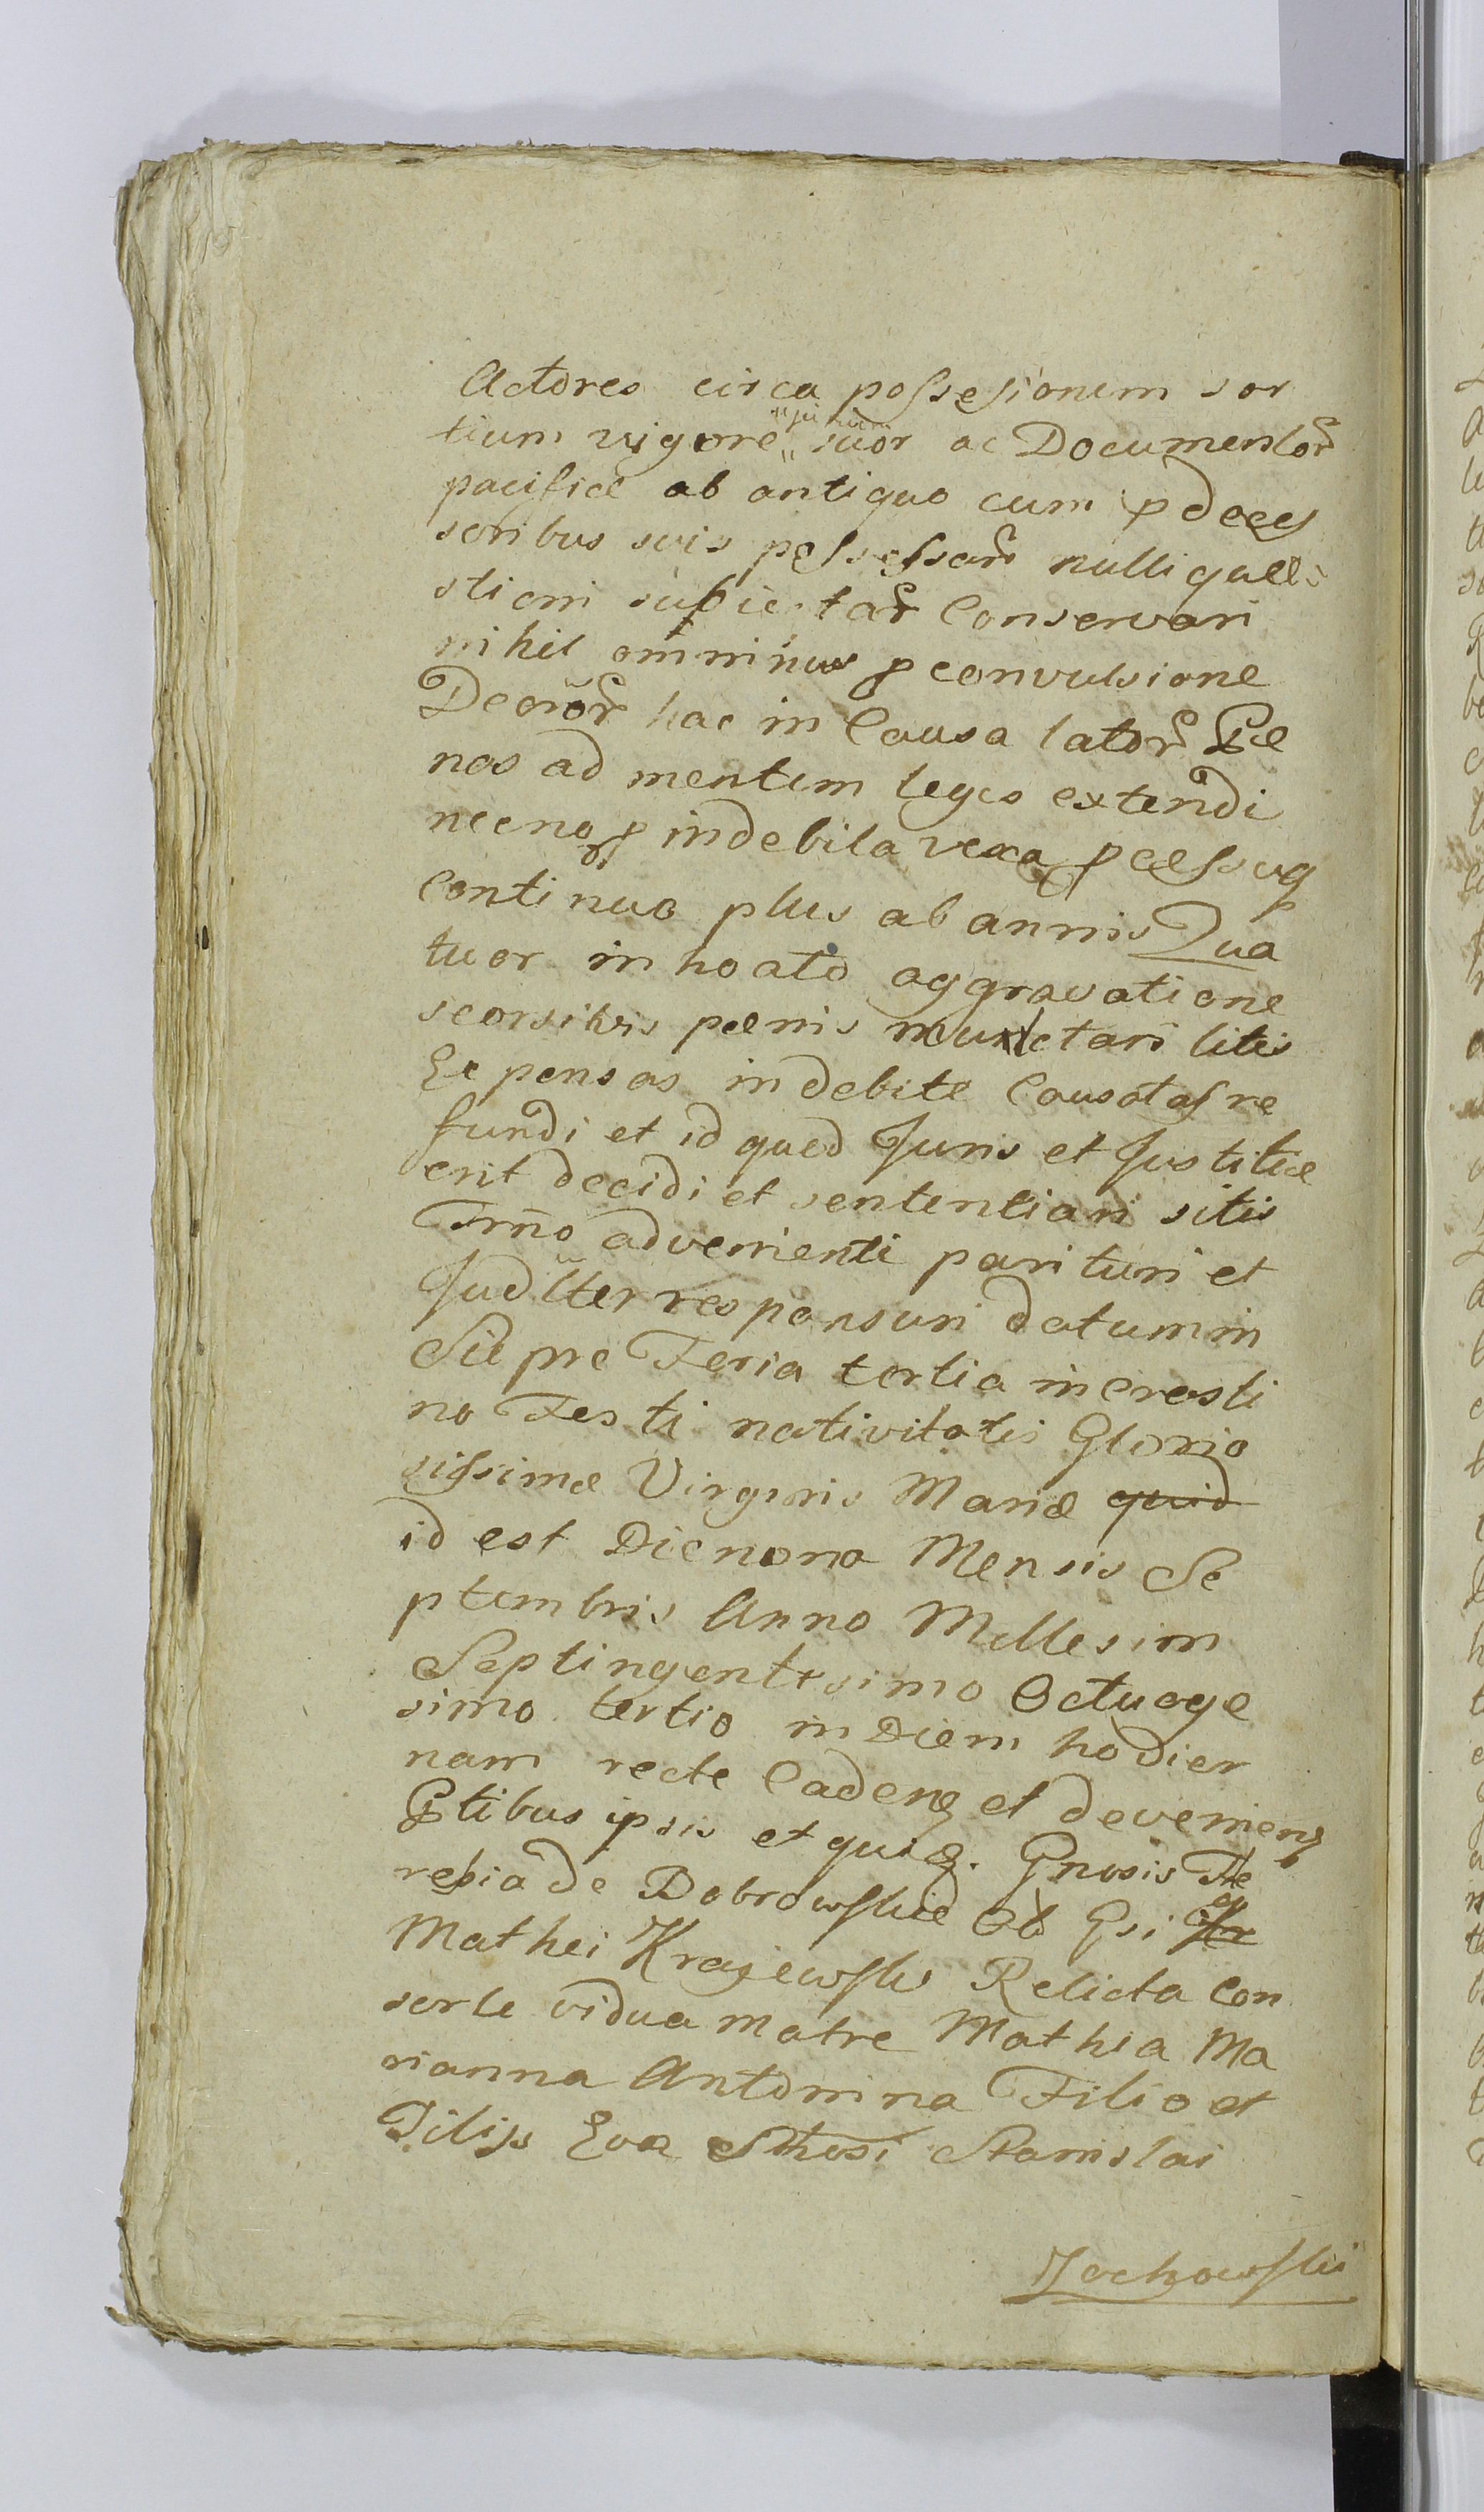 Actores circa possesionem sor
tium vigore jurium suor ac Documentor
pacifice ab antiquo cum pdeces
soribus suis possessar nulli quae
stioni subiectar Conservari
nihil ominus p convulsione
Decror hac in Causa lator Pae
nas ad mentem legis extendi
necno p indebita vexa pcessuq
Continuo plus ab annis Qua
tuor inhoato aggravatione
seorsibis paenis muletari litis
Expensas indebite Causatas re
fundi et id quod Juris et Justitiae
erit decidi et sententiari sitis
Trno advenienti parituri et
Judlter responsuri datum in
Siepre Feria tertia in Crasti
no Festi nativitatis Glorio
sissimae Virginis Mariae quid
id est Die nona Mensis Se
ptembris Anno Millesim
Septingentesimo Octuage
simo tertio in Diem hodier
nam recte Caden et devenien
Ptibus ipsis et quidē. Gnosis The
resia de Dobrowskie Ol Gsi
Mathei Krajewski Relicta Con
sorte vidua matre Mathia Ma
rianna Antonina Filio et
Filijs Eva Sthosi Stanislai
Zochowski